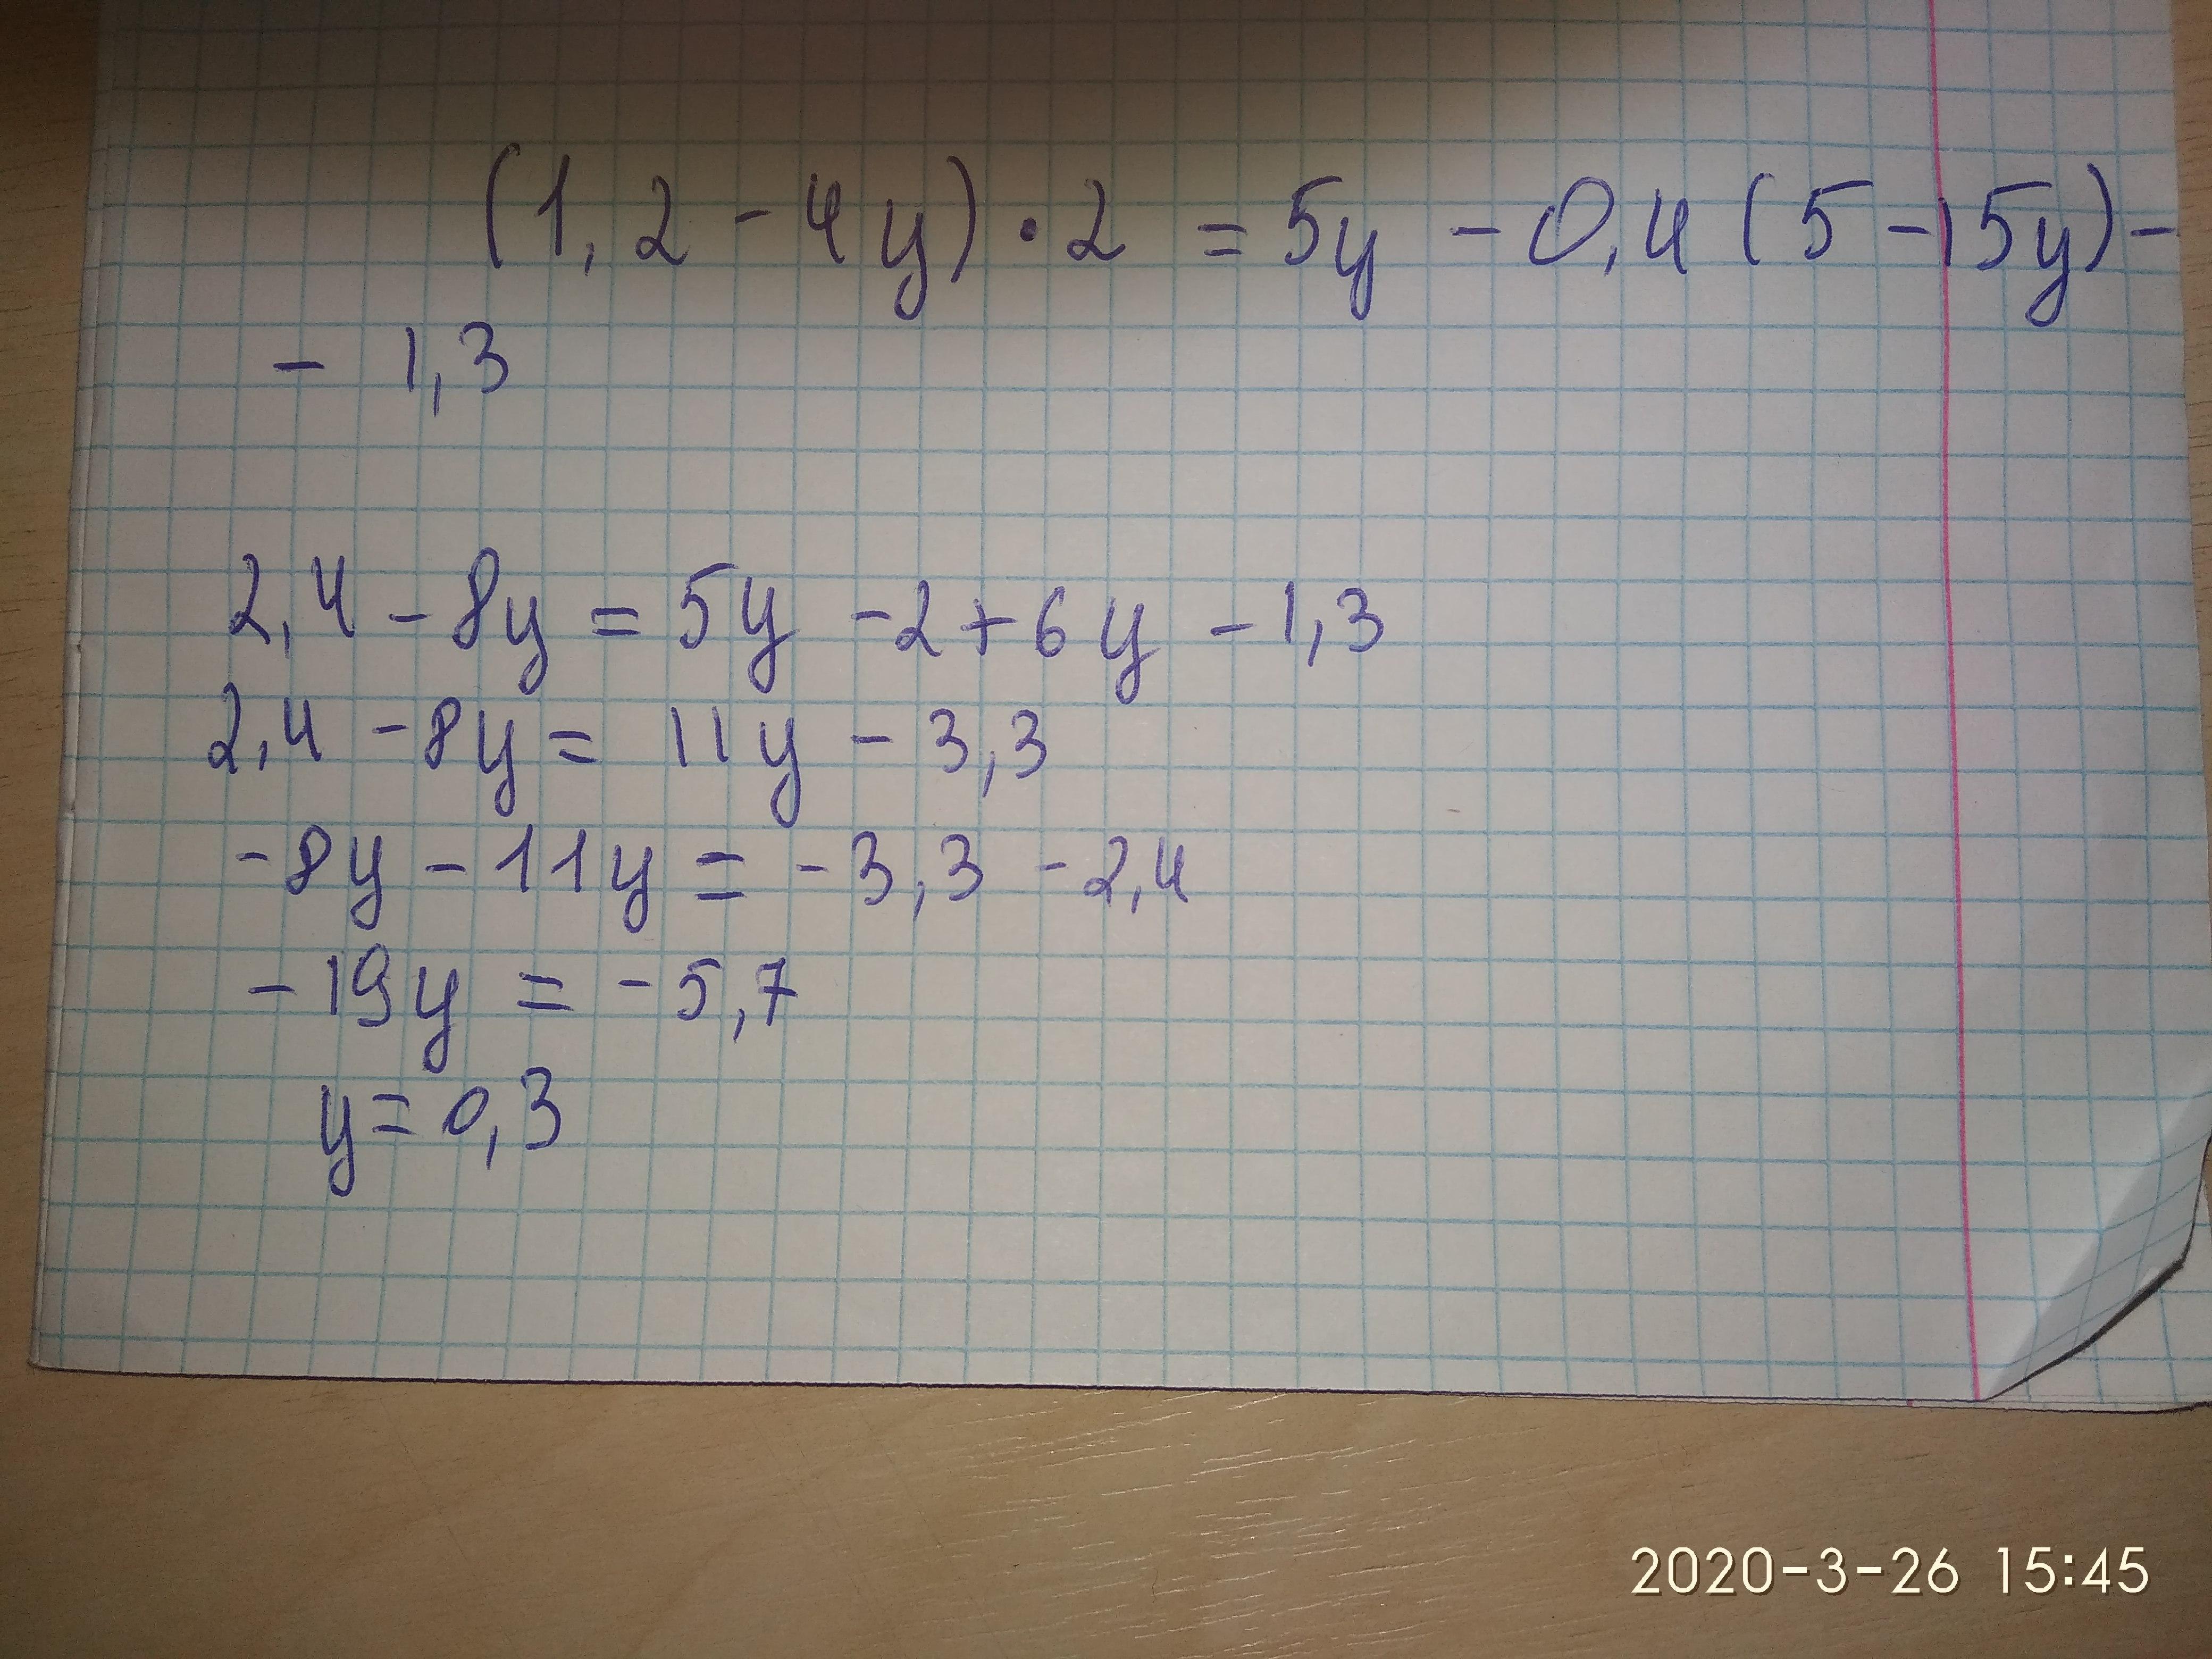 (1,2 - 4y) · 2 = 5y - 0,4 (5 - 15y) -
- 1,3
2,4 - 8y = 5y - 2 + 6y - 1,3
2,4 - 8y = 11y - 3,3
-8y - 11y = -3,3 - 2,4
-19y = -5,7
y = 0,3
2020-3-26 15:45